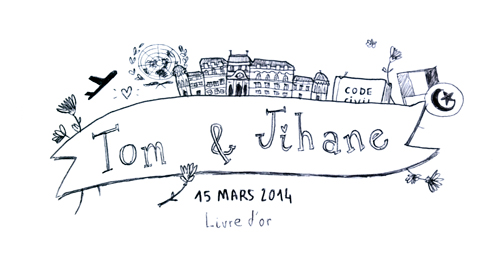 CODE
CIVIL
Tom & Jihane
15 MARS 2014
Livre d'or